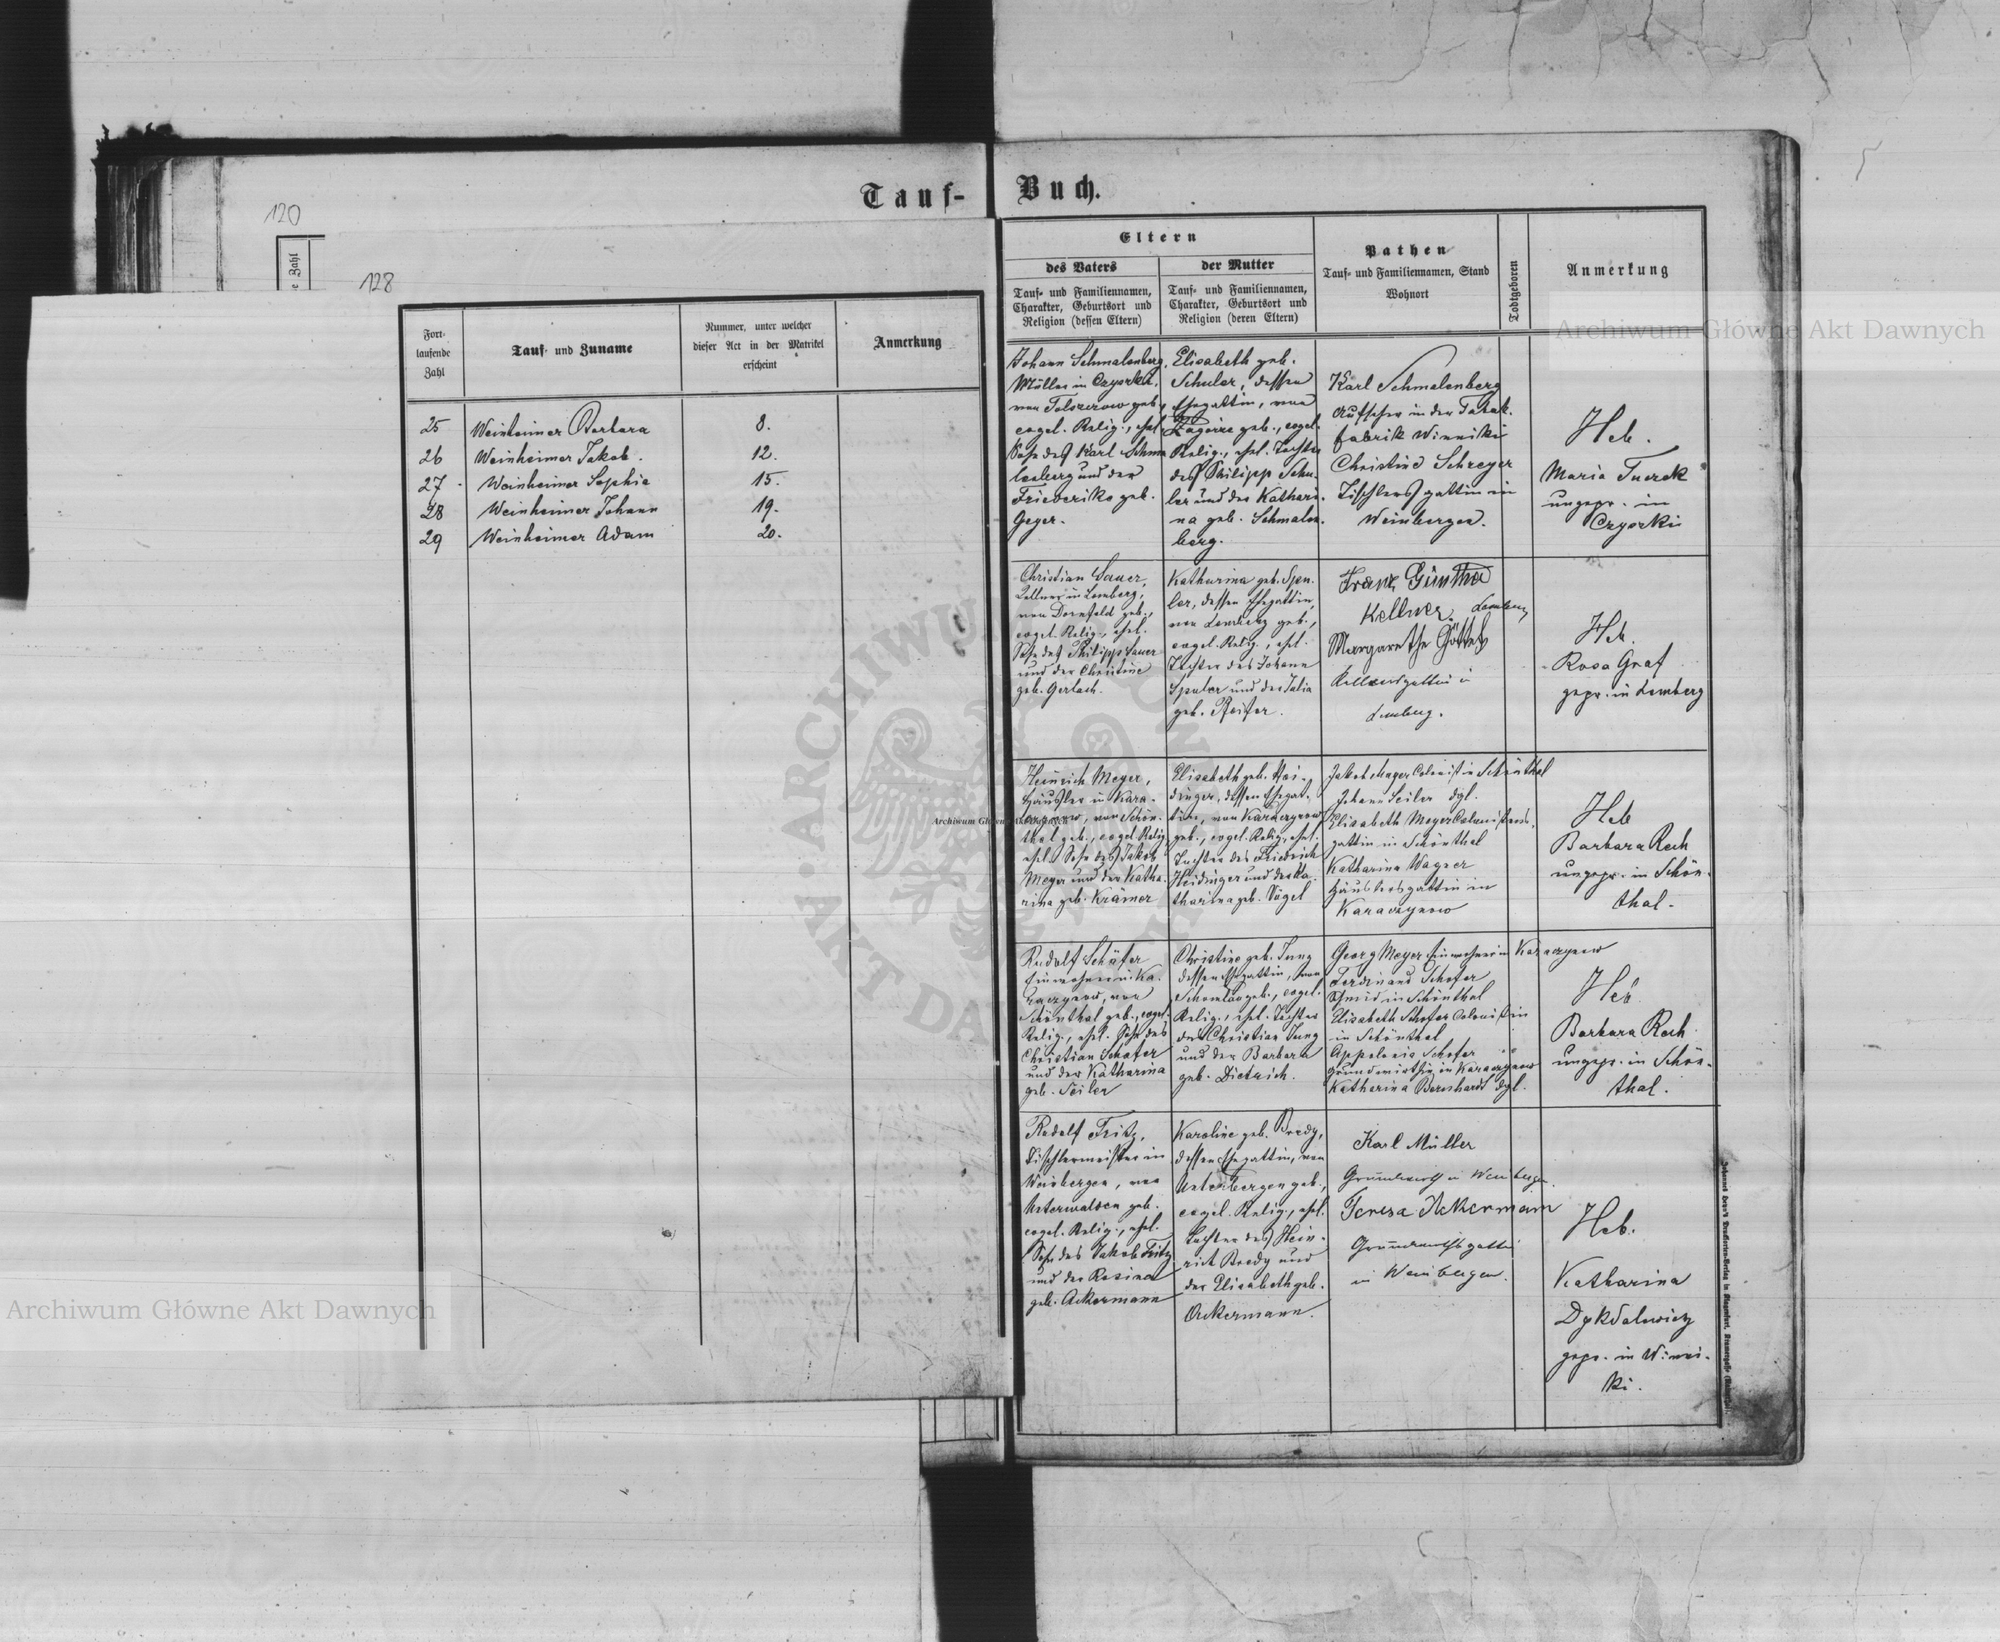 Tauf-
Buch.
120
e Zahl
128
Fort-
laufende
Zahl
Tauf- und Zuname
Nummer, unter welcher
dieser Act in der Matrikel
erscheint
Anmerkung
25 Weinheimer Barbara 8.
26 Weinheimer Jakob. 12.
27 Weinheimer Sophie 15.
28 Weinheimer Johann 19.
29 Weinheimer Adam 20.
Eltern
des Vaters
Tauf- und Familiennamen,
Charakter, Geburtsort und
Religion (dessen Eltern)
der Mutter
Tauf- und Familiennamen,
Charakter, Geburtsort und
Religion (deren Eltern)
Pathen
Tauf- und Familiennamen, Stand
Wohnort
Todtgeboren
Anmerkung
Johann Schmalenberg,
Müller in Czyszki,
von geb.,
evgel. Relig., ehel.
Sohn des Karl Schma
lenberg und der
Friederike geb.
Geyer.
Elisabeth geb.
Schuler, dessen
Ehegattin, von
geb., evgel.
Relig., ehel. Tochter
des Philipp Schu-
ler und der Kathari-
na geb. Schmalen-
berg.
Karl Schmalenberg
Aufseher in der Tabak-
fabrik Winniki
Christine Schreyer
Tischlersgattin in
Weinbergen.
Heb.
Maria Turek
ungepr. in
Czyszki
Christian Sauer,
Kellner in Lemberg,
von Dornfeld geb.,
evgel. Relig., ehel.
Sohn des Philipp Sauer
und der Christine
geb. Gerlach.
Katharina geb. Spen-
ler, dessen Ehegattin,
von Lemberg geb.,
evgel. Relig., ehel.
Tochter des Johann
und der Julia
geb. Pfeifer.
Franz Günther
Kellner, Lemberg
Margarethe Göttel
Kellnersgattin in
Lemberg.
Heb.
Rosa Graf
gepr. in Lemberg
Heinrich Meyer,
Häusler in Kara-
czynow, von Schön-
thal geb., evgel. Relig.
ehel. Sohn des Jakob
Meyer und der Katha-
rina geb. Krämer
Elisabeth geb. Hei-
dinger, dessen Ehegat-
tin, von Karaczynow
geb., evgel. Relig., ehel.
Tochter des Friedrich
Heidinger und der Ka-
tharina geb. Vögel
Jakob Unger Colonist in Schönthal
Johann Seiler dgl.
Elisabeth Meyer Colonistens-
gattin in Schönthal
Katharina Wagner
Häuslersgattin in
Karaczynow
Heb
Barbara Rech
ungepr. in Schön-
thal.
Rudolf Schäfer
Einwohner in Ka-
raczynow, von
Schönthal geb., evgel.
Relig., ehel. Sohn des
Christian Schäfer
und der Katharina
geb. Seiler
Christine geb. Jung
dessen Ehegattin, von
geb., evgel.
Relig., ehel. Tochter
des Christian Jung
und der Barbara
geb. Dietrich.
Georg Meyer Einwohner in Karaczynow
Ferdinand Schofer
Schmid in Schönthal
Elisabeth Schofer Colonistin
in Schönthal
Appolonia Schofer
Grundwirthin in Karaczynow
Katharina Bernhardt dgl.
Heb.
Barbara Rech
ungepr. in Schön-
thal.
Rudolf Fritz,
Tischlermeister in
Weinbergen, von
Unterwalden geb.
evgel. Relig., ehel.
Sohn des Jakob Fritz
und der Rosina
geb. Ackermann
Karoline geb. Bredy,
dessen Ehegattin, von
Unterbergen geb.,
evgel. Relig., ehel.
Tochter des Hein-
rich Bredy und
der Elisabeth geb.
Ackermann.
Karl Müller
Grundwirth in Weinbergen.
Teresa Ackermann
Grundwirthsgattin
in Weinbergen.
Heb.
Katharina
Dykdalewicz
gepr. in Winni-
ki.
Archiwum Główne Akt Dawnych
Archiwum Główne Akt Dawnych
Archiwum Główne Akt Dawnych